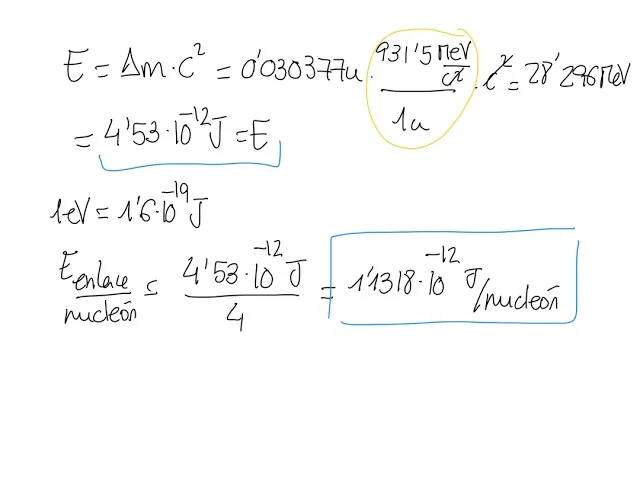 E = Δm·c² = 0'030377u · 931'5 MeV/c² / 1u · c² = 28'296 MeV
= 4'53·10⁻¹² J = E
1eV = 1'6·10⁻¹⁹ J
E enlace / nucleón = 4'53·10⁻¹² J / 4 = 1'1318·10⁻¹² J/nucleón